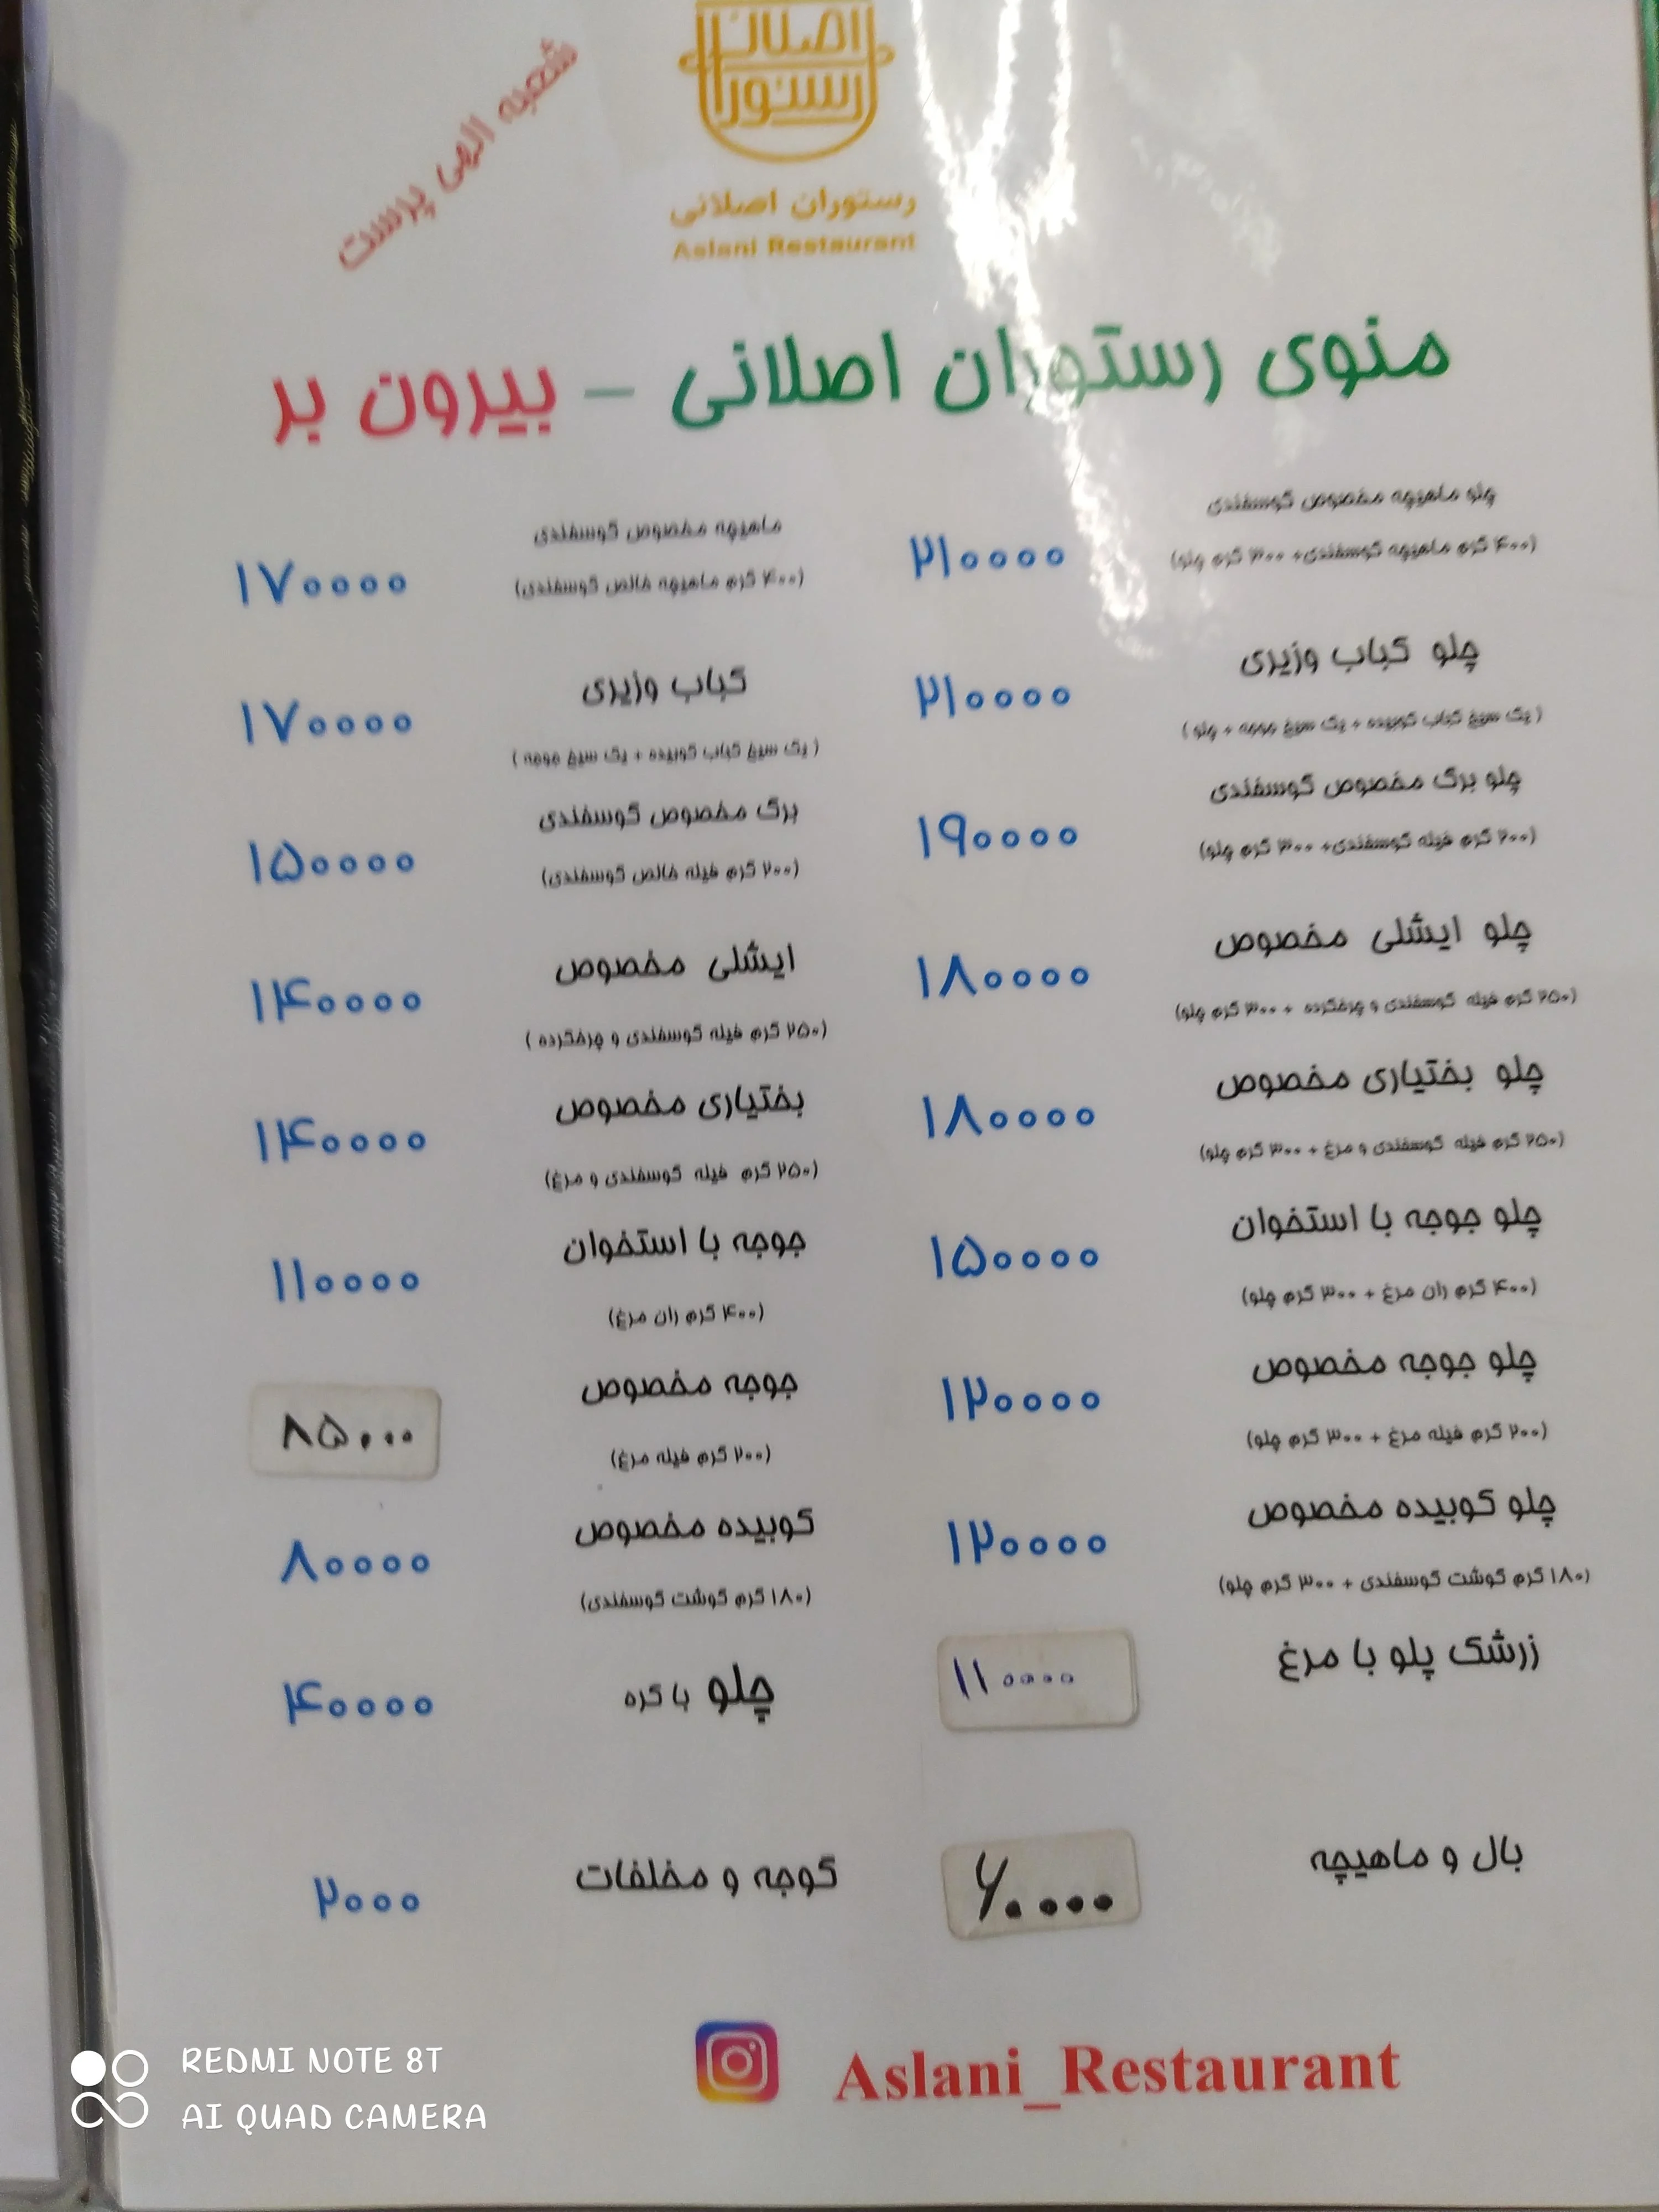 اصلانی
رستوران
شعبه الهی پرست
رستوران اصلانی
Aslani Restaurant
منوی رستوران اصلانی - بیرون بر
چلو ماهیچه مخصوص گوسفندی
(۴۰۰ گرم ماهیچه گوسفندی+ ۳۰۰ گرم چلو)
۲۱۰۰۰۰
ماهیچه مخصوص گوسفندی
(۴۰۰ گرم ماهیچه خالص گوسفندی)
۱۷۰۰۰۰
چلو کباب وزیری
( یک سیخ کباب کوبیده + یک سیخ جوجه + چلو )
۲۱۰۰۰۰
کباب وزیری
( یک سیخ کباب کوبیده + یک سیخ جوجه )
۱۷۰۰۰۰
چلو برگ مخصوص گوسفندی
(۲۰۰ گرم فیله گوسفندی+ ۳۰۰ گرم چلو)
۱۹۰۰۰۰
برگ مخصوص گوسفندی
(۲۰۰ گرم فیله خالص گوسفندی)
۱۵۰۰۰۰
چلو ایشلی مخصوص
(۲۵۰ گرم فیله گوسفندی و چرخکرده + ۳۰۰ گرم چلو)
۱۸۰۰۰۰
ایشلی مخصوص
(۲۵۰ گرم فیله گوسفندی و چرخکرده )
۱۴۰۰۰۰
چلو بختیاری مخصوص
(۲۵۰ گرم فیله گوسفندی و مرغ + ۳۰۰ گرم چلو)
۱۸۰۰۰۰
بختیاری مخصوص
(۲۵۰ گرم فیله گوسفندی و مرغ)
۱۴۰۰۰۰
چلو جوجه با استخوان
(۴۰۰ گرم ران مرغ + ۳۰۰ گرم چلو)
۱۵۰۰۰۰
جوجه با استخوان
(۴۰۰ گرم ران مرغ)
۱۱۰۰۰۰
چلو جوجه مخصوص
(۲۰۰ گرم فیله مرغ + ۳۰۰ گرم چلو)
۱۲۰۰۰۰
جوجه مخصوص
(۲۰۰ گرم فیله مرغ)
۸۵۰۰۰
چلو کوبیده مخصوص
(۱۸۰ گرم گوشت گوسفندی + ۳۰۰ گرم چلو)
۱۲۰۰۰۰
کوبیده مخصوص
(۱۸۰ گرم گوشت گوسفندی)
۸۰۰۰۰
زرشک پلو با مرغ
۱۱۰۰۰۰
چلو با کره
۴۰۰۰۰
بال و ماهیچه
۶۰۰۰۰
گوجه و مخلفات
۲۰۰۰
Aslani_Restaurant
REDMI NOTE 8T
AI QUAD CAMERA